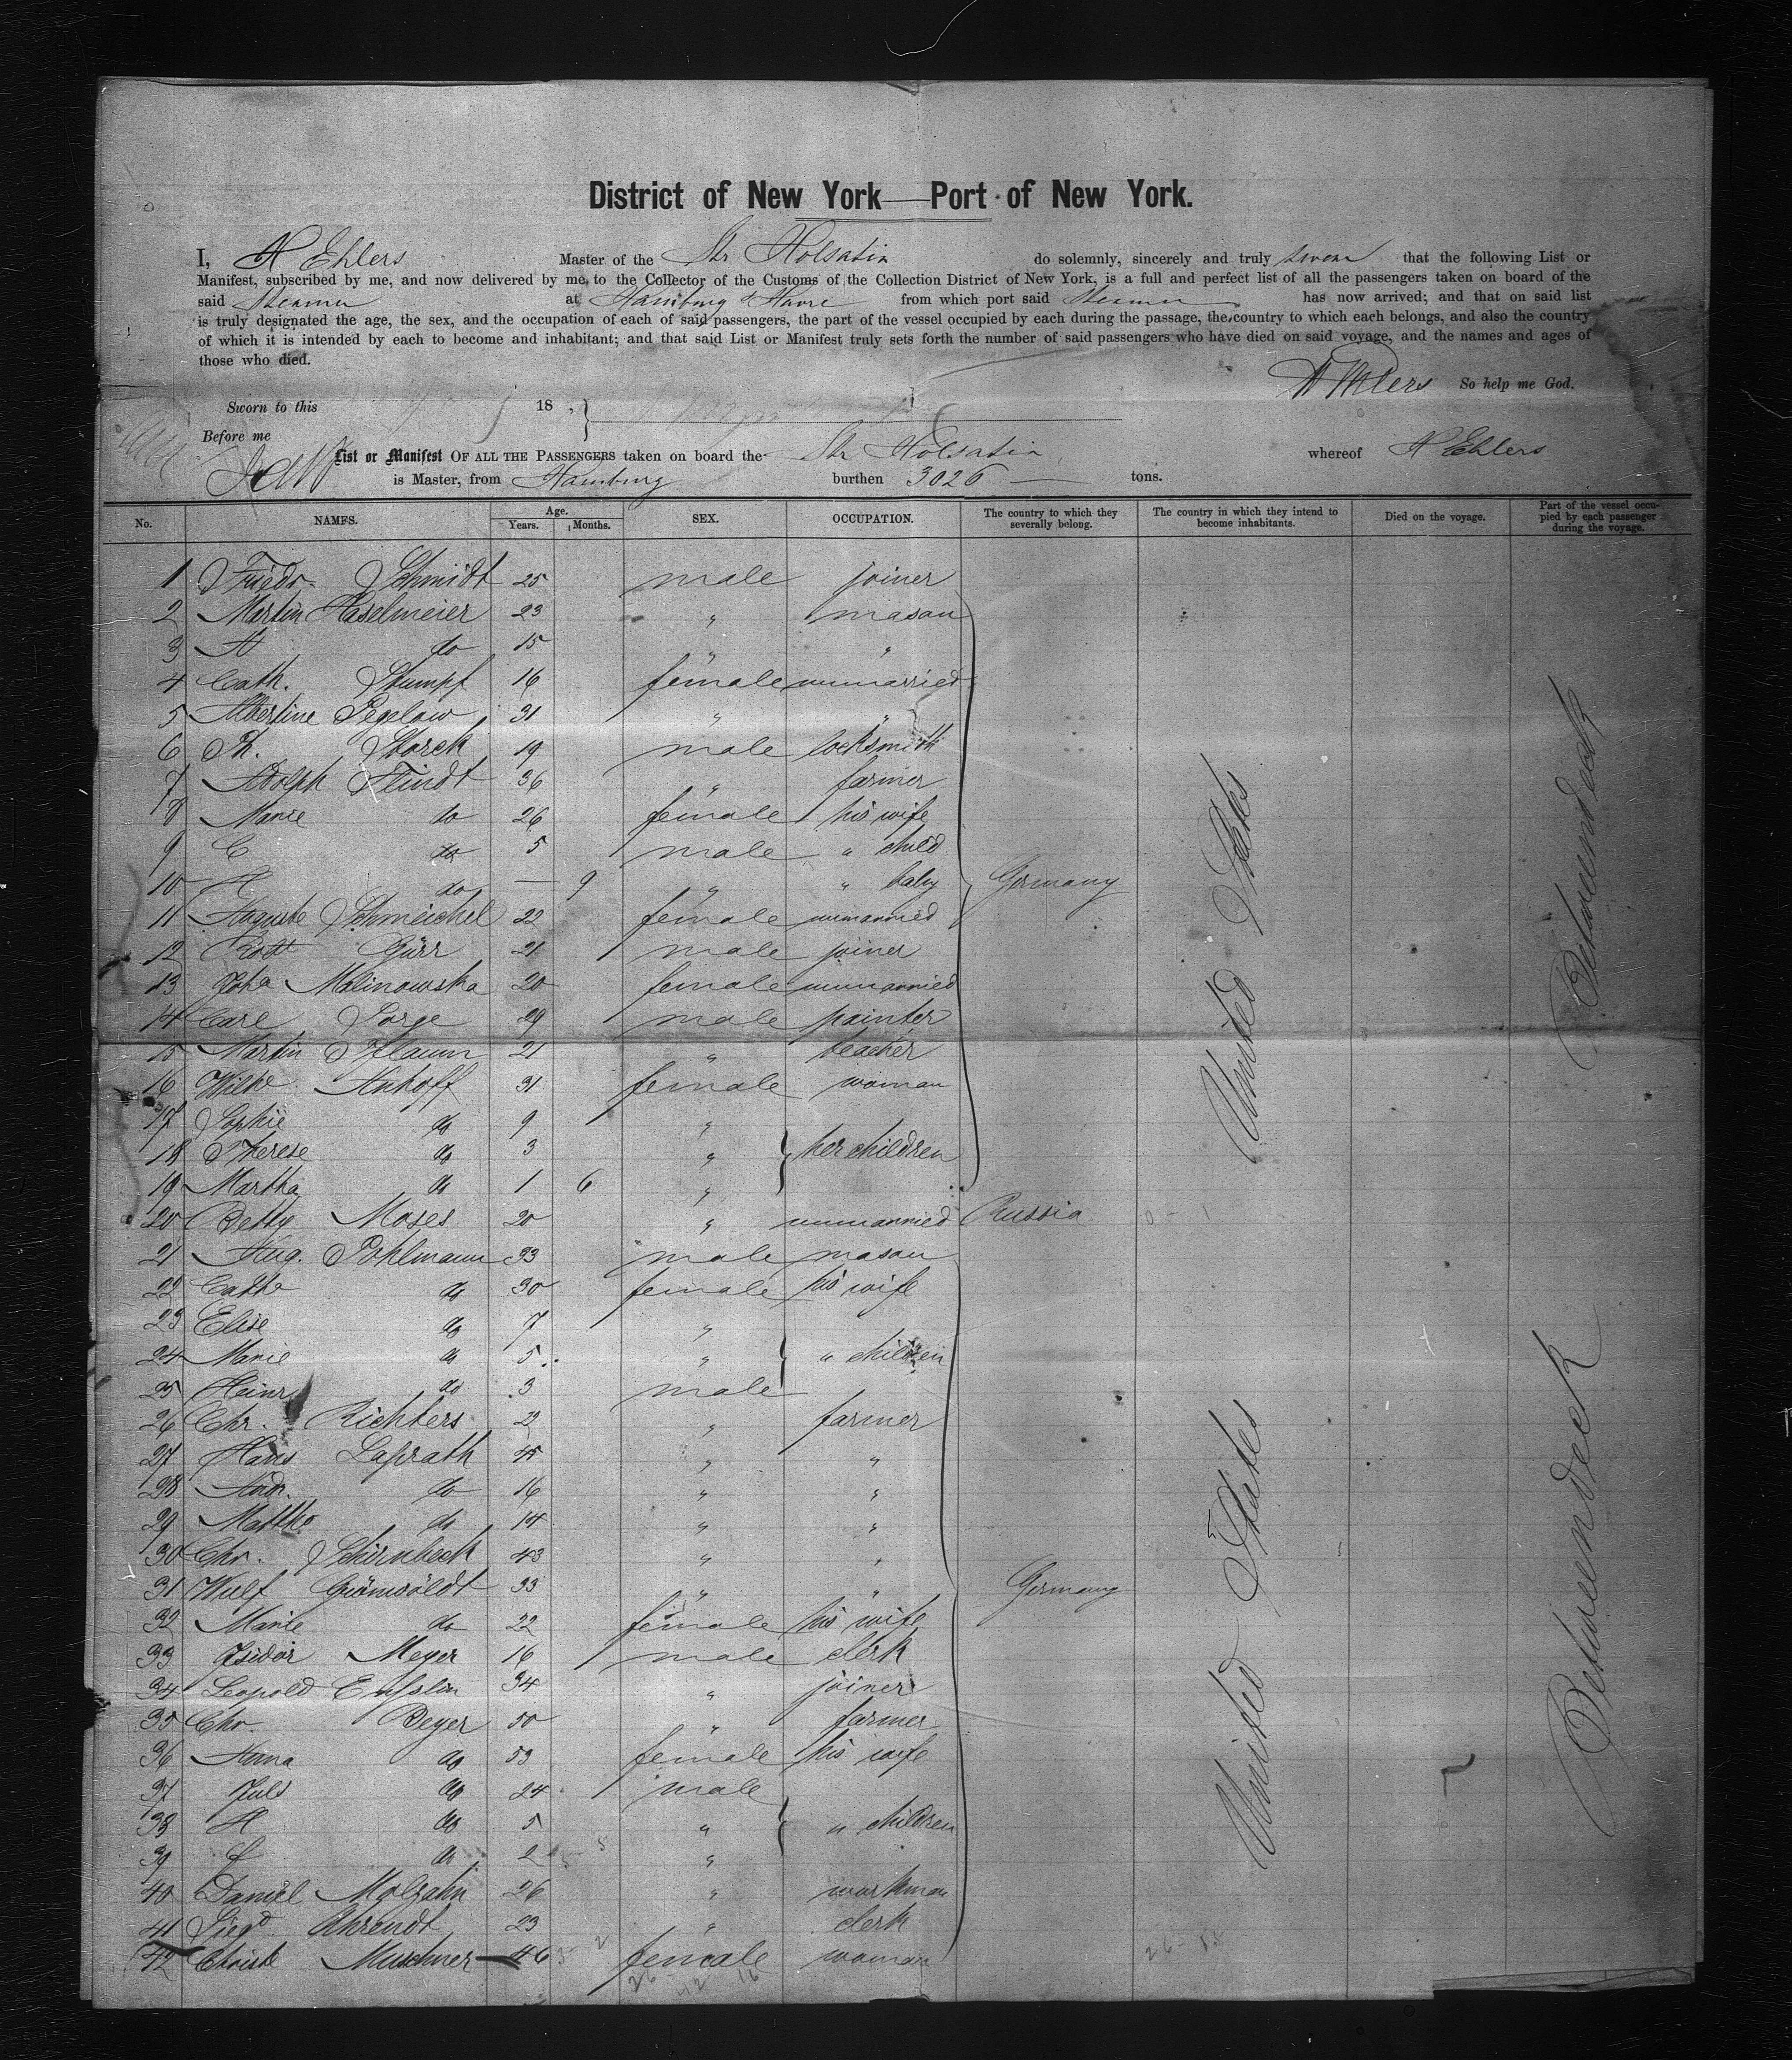 District of New York — Port of New York.
I, A Ehlers Master of the Str Holsatia do solemnly, sincerely and truly swear that the following List or
Manifest, subscribed by me, and now delivered by me, to the Collector of the Customs of the Collection District of New York, is a full and perfect list of all the passengers taken on board of the
said Steamer at Hamburg & Havre from which port said Steamer has now arrived; and that on said list
is truly designated the age, the sex, and the occupation of each of said passengers, the part of the vessel occupied by each during the passage, the country to which each belongs, and also the country
of which it is intended by each to become and inhabitant; and that said List or Manifest truly sets forth the number of said passengers who have died on said voyage, and the names and ages of
those who died.
A Ehlers So help me God.
Sworn to this 18 ,
Before me
List or Manifest OF ALL THE PASSENGERS taken on board the Str Holsatia whereof A Ehlers
is Master, from Hamburg burthen 3026 tons.
No. NAMES. Age. Years. Months. SEX. OCCUPATION. The country to which they severally belong. The country in which they intend to become inhabitants. Died on the voyage. Part of the vessel occupied by each passenger during the voyage.
1 Friedr. Schmidt 25 male joiner
2 Martin Haselmeier 23 " mason
3 A do 15 " "
4 Cath. Stumpf 16 female unmarried
5 Albertine Pegelow 31 " "
6 Th. Storck 19 male locksmith
7 Adolph Flindt 36 " farmer
8 Marie do 26 female his wife
9 C do 5 male " child
10 H do — 9 " " baby Germany
11 Auguste Schmeichel 22 female unmarried
12 Gürr 21 male joiner
13 Joha Malinowska 20 female unmarried
14 Carl Sorge 29 male painter
15 Martin Pflaum 21 " teacher
16 Wilhe Anhoff 31 female woman
17 Sophie do 9 "
18 Therese do 3 " her children
19 Martha do 1 6 "
20 Betty Moses 20 " unmarried Russia
21 Aug. Pohlmann 33 male mason
22 Cathe do 30 female his wife
23 Elise do 7 "
24 Marie do 5 " " children
25 Heinr do 3 male
26 Chr. Richters 22 " farmer
27 Hans Lassrath 45 " "
28 Andr. do 16 " "
29 Matths do 14 " "
30 Chr. Schirnbeck 43 " "
31 Wulf Grünwoldt 33 " " Germany
32 Marie do 22 female his wife
33 Isidor Meyer 16 male clerk
34 Leopold Ensslin 34 " joiner
35 Chr. Beyer 50 " farmer
36 Anna do 53 female his wife
37 Juls do 24 male
38 H do 5 " " children
39 do 2 "
40 Daniel Molzahn 26 " workman
41 Siegd Ahrendt 23 " clerk
42 Christe Muschner 46 female woman
United States
Betweendeck
United States
Betweendeck